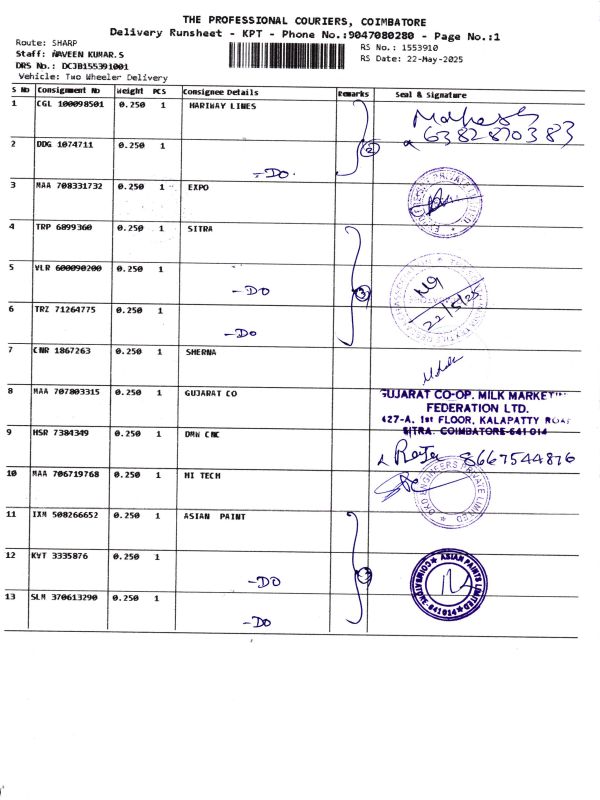 THE PROFESSIONAL COURIERS, COIMBATORE
Delivery Runsheet - KPT - Phone No.:9047080280 - Page No.:1
Route: SHARP
RS No.: 1553910
Staff: NAVEEN KUMAR.S
RS Date: 22-May-2025
DRS No.: DCJB155391001
Vehicle: Two Wheeler Delivery
S No Consignment No Weight PCS Consignee Details Remarks Seal & Signature
1 CGL 100098501 0.250 1 HARIWAY LINES
Mahesh
6382870383
2 DDG 1074711 0.250 1
-DO- 2
3 MAA 708331732 0.250 1 EXPO
4 TRP 6899360 0.250 1 SITRA
5 VLR 600090200 0.250 1
-DO 3
22/5/25
6 TRZ 71264775 0.250 1
-DO
7 CNR 1867263 0.250 1 SHERNA
8 MAA 707803315 0.250 1 GUJARAT CO
GUJARAT CO-OP. MILK MARKET
FEDERATION LTD.
427-A, 1st FLOOR, KALAPATTY ROAD
SITRA. COIMBATORE-641 014
9 HSR 7384349 0.250 1 DMW CNC
Raja 8667544876
10 MAA 706719768 0.250 1 HI TECH
ENGINEERS PRIVATE LIMITED
11 IXM 508266652 0.250 1 ASIAN PAINT
12 KVT 3335876 0.250 1
-DO
ASIAN PAINTS LIMITED
COIMBATORE-641014
13 SLM 370613290 0.250 1
-DO